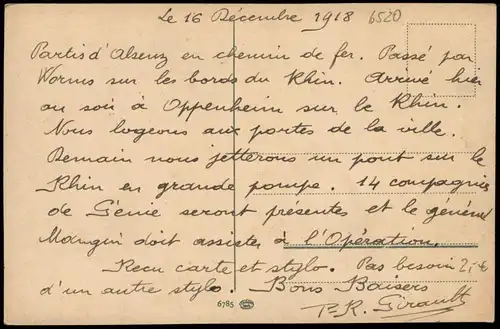 Le 16 Décembre 1918 6520
Partis d'Alsenz en chemin de fer. Passé par
Worms sur les bords du Rhin. Arrivé hier
au soir à Oppenheim sur le Rhin.
Nous logeons aux portes de la ville.
Demain nous jetterons un pont sur le
Rhin en grande pompe. 14 compagnies
de Génie seront présentes et le général
Mangin doit assister à l'Opération.
Recu carte et stylo. Pas besoin
d'un autre stylo. Bons Baisers
P. R. Girault
6785